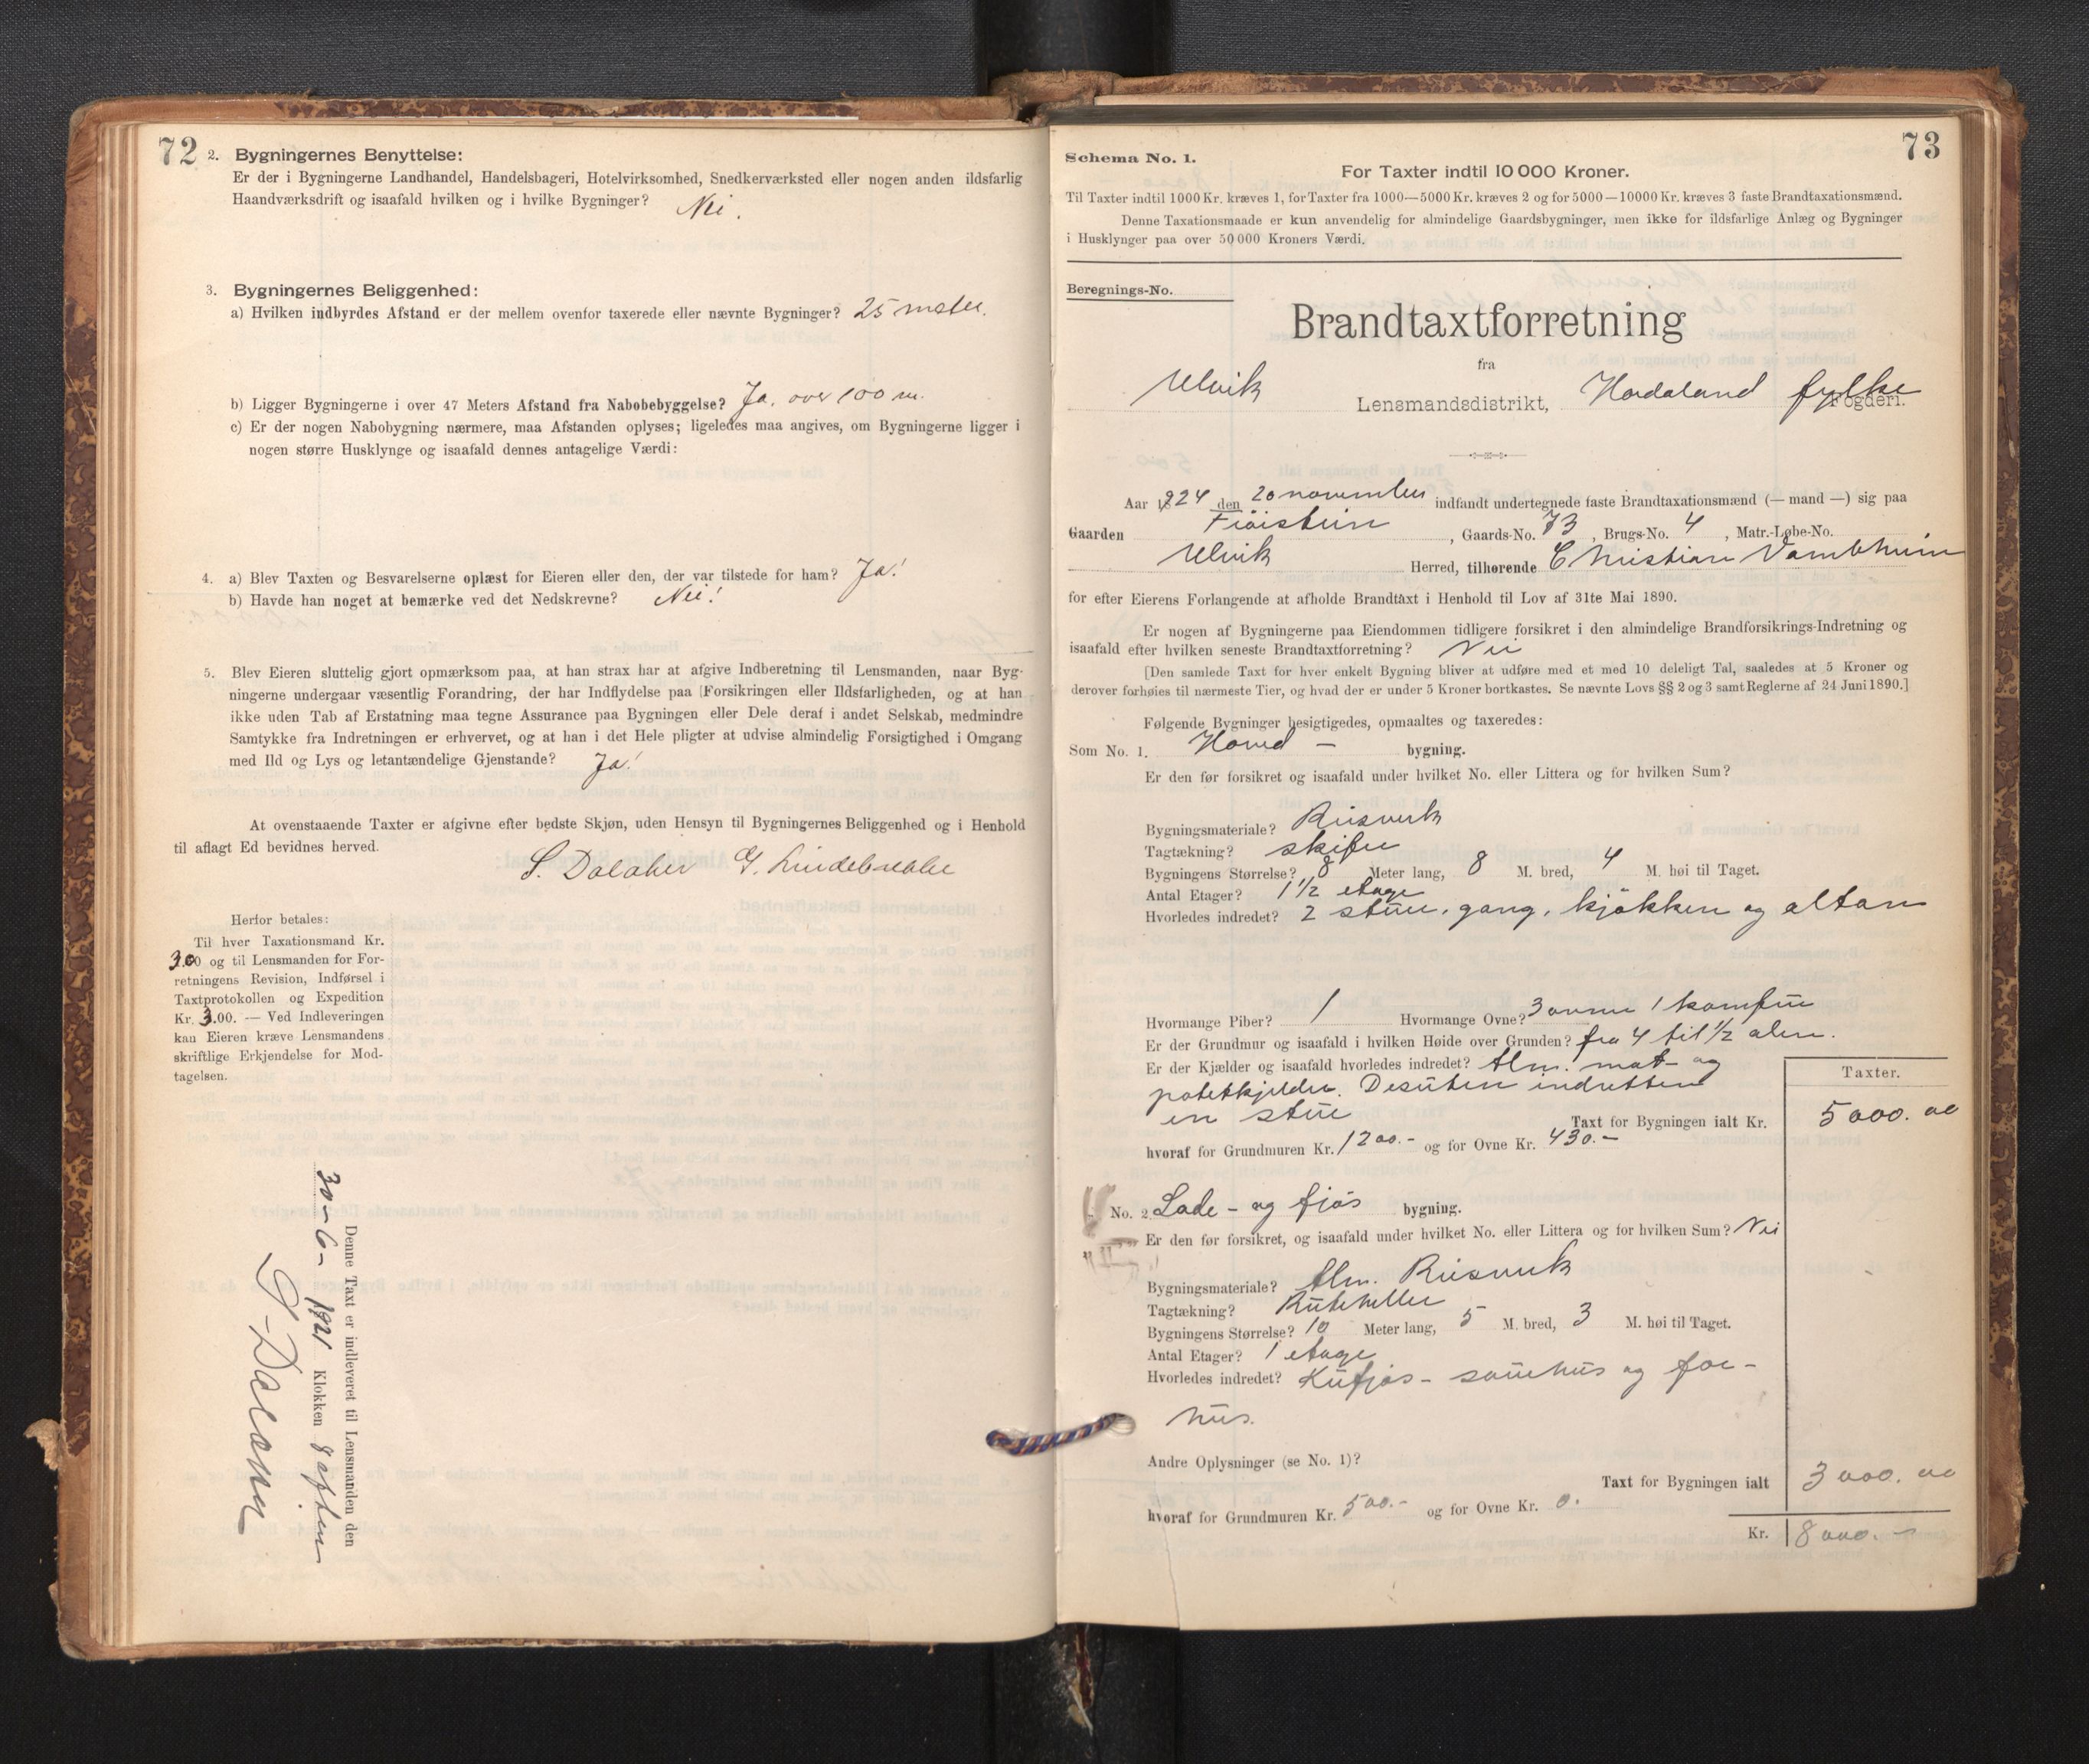 72
2. Bygningernes Benyttelse:
Er der i Bygningerne Landhandel, Handelsbageri, Hotelvirksomhed, Snedkerværksted eller nogen anden ildsfarlig
Haandværksdrift og isaafald hvilken og i hvilke Bygninger? Nei.
3. Bygningernes Beliggenhed:
a) Hvilken indbyrdes Afstand er der mellem ovenfor taxerede eller nævnte Bygninger? 25 meter.
b) Ligger Bygningerne i over 47 Meters Afstand fra Nabobebyggelse? Ja. over 100 m.
c) Er der nogen Nabobygning nærmere, maa Afstanden oplyses; ligeledes maa angives, om Bygningerne ligger i
nogen større Husklynge og isaafald dennes antagelige Værdi:
4. a) Blev Taxten og Besvarelserne oplæst for Eieren eller den, der var tilstede for ham? Ja!
b) Havde han noget at bemærke ved det Nedskrevne? Nei!
5. Blev Eieren sluttelig gjort opmærksom paa, at han strax har at afgive Indberetning til Lensmanden, naar Byg-
ningerne undergaar væsentlig Forandring, der har Indflydelse paa Forsikringen eller Ildsfarligheden, og at han
ikke uden Tab af Erstatning maa tegne Assurance paa Bygningen eller Dele deraf i andet Selskab, medmindre
Samtykke fra Indretningen er erhvervet, og at han i det Hele pligter at udvise almindelig Forsigtighed i Omgang
med Ild og Lys og letantændelige Gjenstande? Ja!
At ovenstaaende Taxter er afgivne efter bedste Skjøn, uden Hensyn til Bygningernes Beliggenhed og i Henhold
til aflagt Ed bevidnes herved.
S. Dalaker G. Lindebrække
Herfor betales:
Til hver Taxationsmand Kr.
3.00 og til Lensmanden for For-
retningens Revision, Indførsel i
Taxtprotokollen og Expedition
Kr. 3.00. — Ved Indleveringen
kan Eieren kræve Lensmandens
skriftlige Erkjendelse for Mod-
tagelsen.
Denne Taxt er indleveret til Lensmanden den
30-6- 1921 Klokken 8 aften
73
Schema No. 1.
For Taxter indtil 10 000 Kroner.
Til Taxter indtil 1000 Kr. kræves 1, for Taxter fra 1000—5000 Kr. kræves 2 og for 5000—10000 Kr. kræves 3 faste Brandtaxationsmænd.
Denne Taxationsmaade er kun anvendelig for almindelige Gaardsbygninger, men ikke for ildsfarlige Anlæg og Bygninger
i Husklynger paa over 50 000 Kroners Værdi.
Beregnings-No.
Brandtaxtforretning
fra
Ulvik Lensmandsdistrikt, Hordaland fylke Fogderi.
Aar 1924 den 20 november indfandt undertegnede faste Brandtaxationsmænd (— mand —) sig paa
Gaarden , Gaards-No. 73, Brugs-No. 4, Matr.-Løbe-No.
Ulvik Herred, tilhørende Christian Vambheim
for efter Eierens Forlangende at afholde Brandtaxt i Henhold til Lov af 31te Mai 1890.
Er nogen af Bygningerne paa Eiendommen tidligere forsikret i den almindelige Brandforsikrings-Indretning og
isaafald efter hvilken seneste Brandtaxtforretning? Nei
[Den samlede Taxt for hver enkelt Bygning bliver at udføre med et med 10 deleligt Tal, saaledes at 5 Kroner og
derover forhøies til nærmeste Tier, og hvad der er under 5 Kroner bortkastes. Se nævnte Lovs §§ 2 og 3 samt Reglerne af 24 Juni 1890.]
Følgende Bygninger besigtigedes, opmaaltes og taxeredes:
Som No. 1. Hoved - bygning.
Er den før forsikret og isaafald under hvilket No. eller Littera og for hvilken Sum?
Bygningsmateriale? Reisverk
Tagtækning? skifer
Bygningens Størrelse? 8 Meter lang, 8 M. bred, 4 M. høi til Taget.
Antal Etager? 1 1/2 etage
Hvorledes indredet? 2 stuer, gang, kjøkken og altan
Hvormange Piber? 1 Hvormange Ovne? 3 ovner 1 komfur
Er der Grundmur og isaafald i hvilken Høide over Grunden? fra 4 til 1/2 alen.
Er der Kjælder og isaafald hvorledes indredet? Alm. mat- og
potetkjelder. Desuten indrettet
en stue
Taxter.
Taxt for Bygningen ialt Kr. 5000.00
hvoraf for Grundmuren Kr. 1200.- og for Ovne Kr. 430.-
No. 2. Lade - og fjøs bygning.
Er den før forsikret, og isaafald under hvilket No. eller Littera og for hvilken Sum? Nei
Bygningsmateriale? Alm. Reisverk
Tagtækning? Ruteheller
Bygningens Størrelse? 10 Meter lang, 5 M. bred, 3 M. høi til Taget.
Antal Etager? 1 etage
Hvorledes indredet? Kufjøs - sauehus og for-
hus.
Andre Oplysninger (se No. 1)?
Taxt for Bygningen ialt 3000.00
hvoraf for Grundmuren Kr. 500.- og for Ovne Kr. 0.
Kr. 8000.-